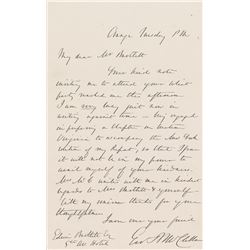 Orange Tuesday P.M.
My dear Mr Bartlett
Your kind note
inviting me to attend your whist
party reached me this afternoon
I am very busy just now in
writing against time — being engaged
in preparing a Chapter on Western
Virginia to accompany the New York
edition of my Report, so that I fear
it will not be in my power to
avail myself of your kindness.
Mrs McC unites with me in kindest
regards to Mrs Bartlett & yourself
With my sincere thanks for your
thoughtfulness
I am ever your friend
Geo B McClellan
Edwin Bartlett Esq
5th Av Hotel